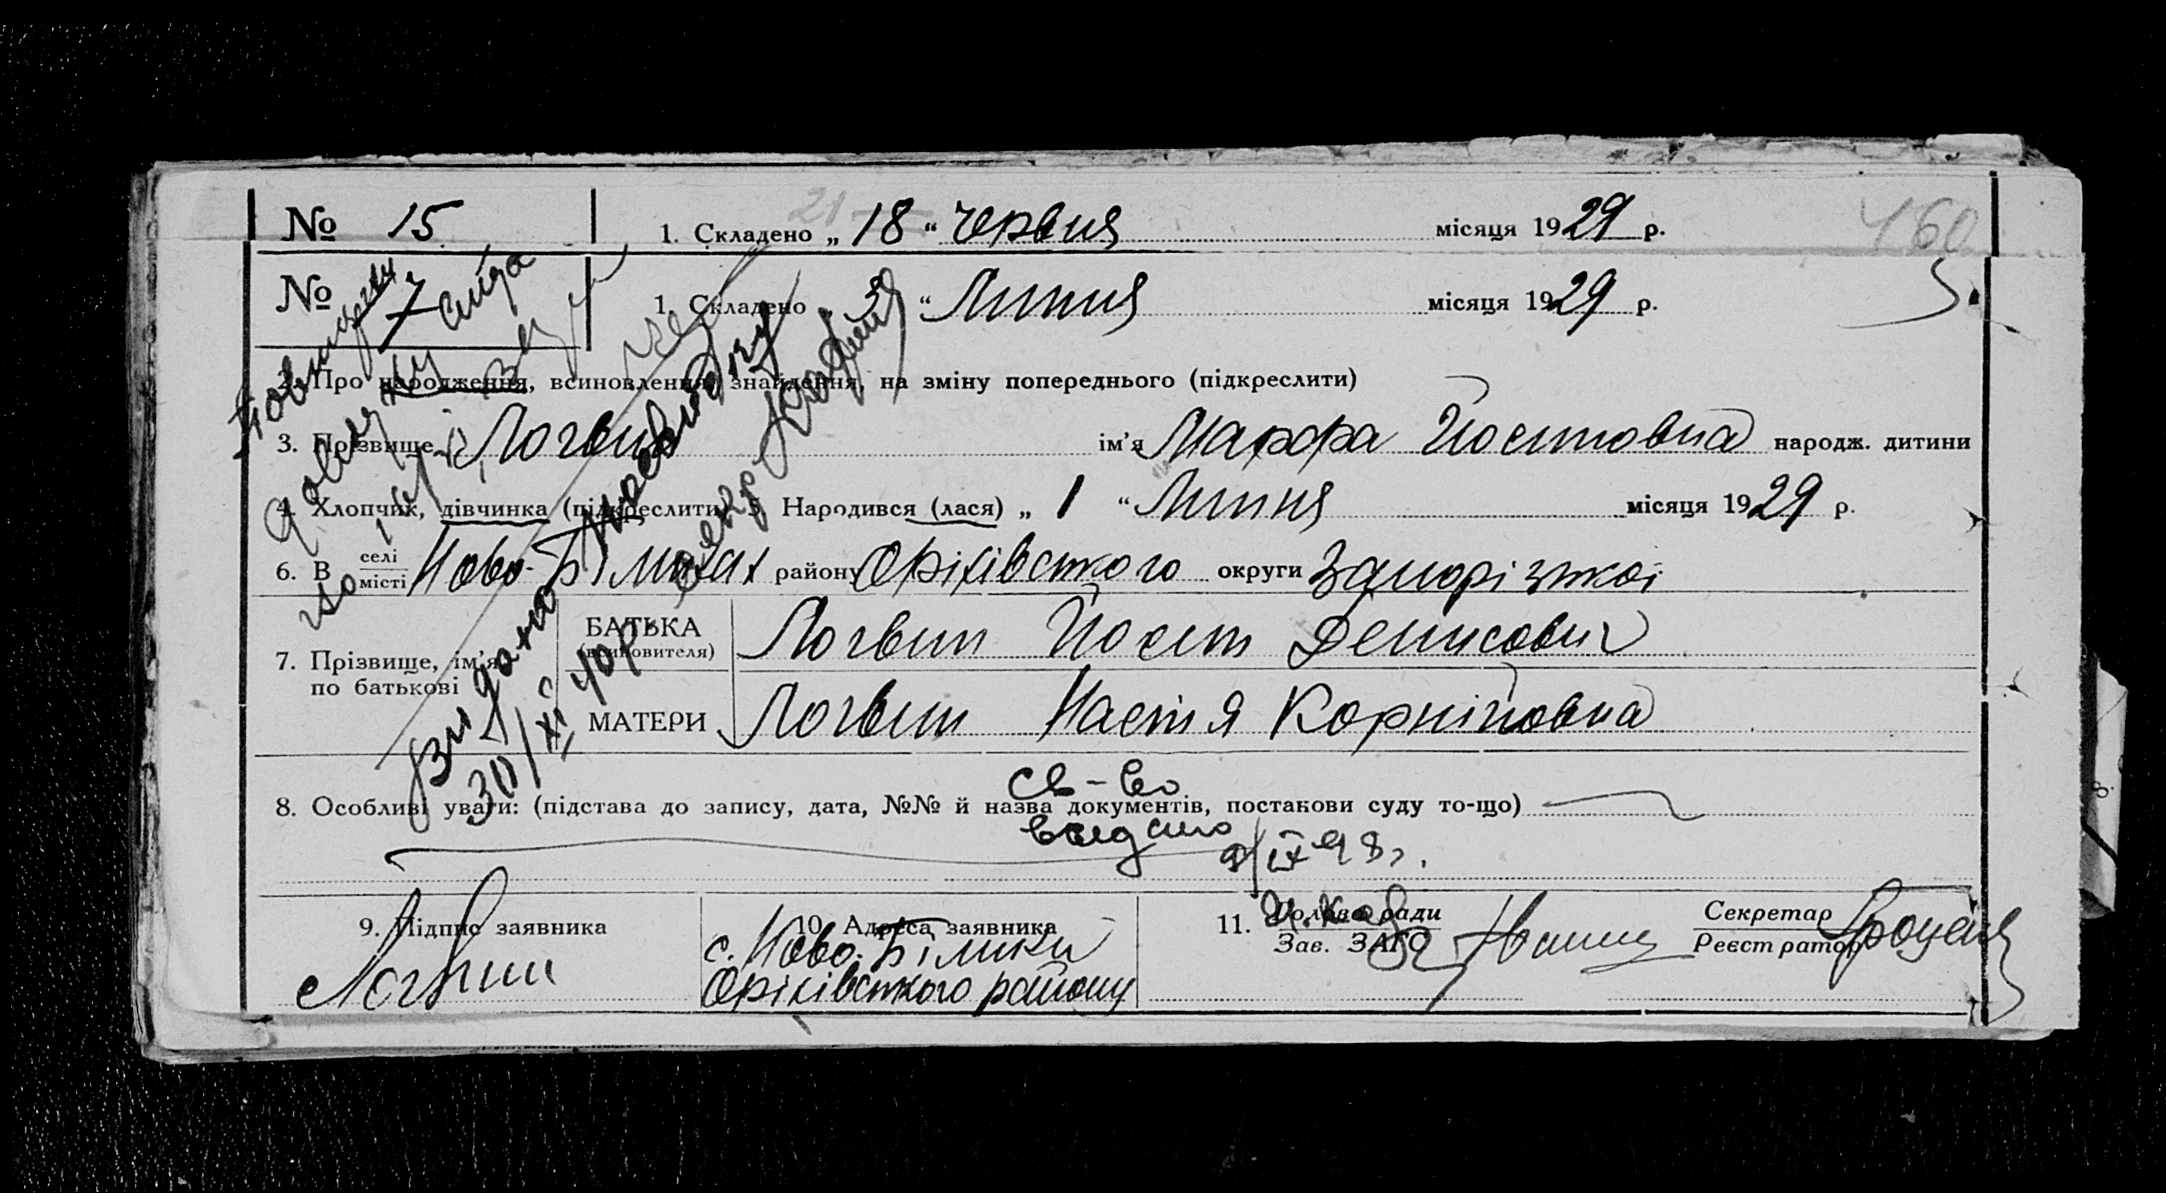 № 15 1. Складено „ 18 “ червня місяця 1929 р. 160
№ 7 1. Складено „ 3 “ Липня місяця 1929 р.
2. Про народження, всиновлення, знайдення, на зміну попереднього (підкреслити)
3. Прізвище Логвин ім'я Марфа Йостовна народж. дитини
4. Хлопчик, дівчинка (підкреслити) 5. Народився (лася) „ 1 “ Липня місяця 1929 р.
6. В селі місті Ново-Біликах району Оріхівського округи Запорізької
7. Прізвище, ім'я по батькові
БАТЬКА (всиновителя) Логвин Йост Денисович
МАТЕРИ Логвин Настя Корнійовна
Видано
30/XI 40р.
8. Особливі уваги: (підстава до запису, дата, №№ й назва документів, постанови суду то-що)
св-во
выдано
9/IX 48 г.
9. Підпис заявника
Логвин
10. Адреса заявника
с. Ново-Білики
Оріхівського району
11. Голова ради
Зав. ЗАГС
Секретар
Реєстратор